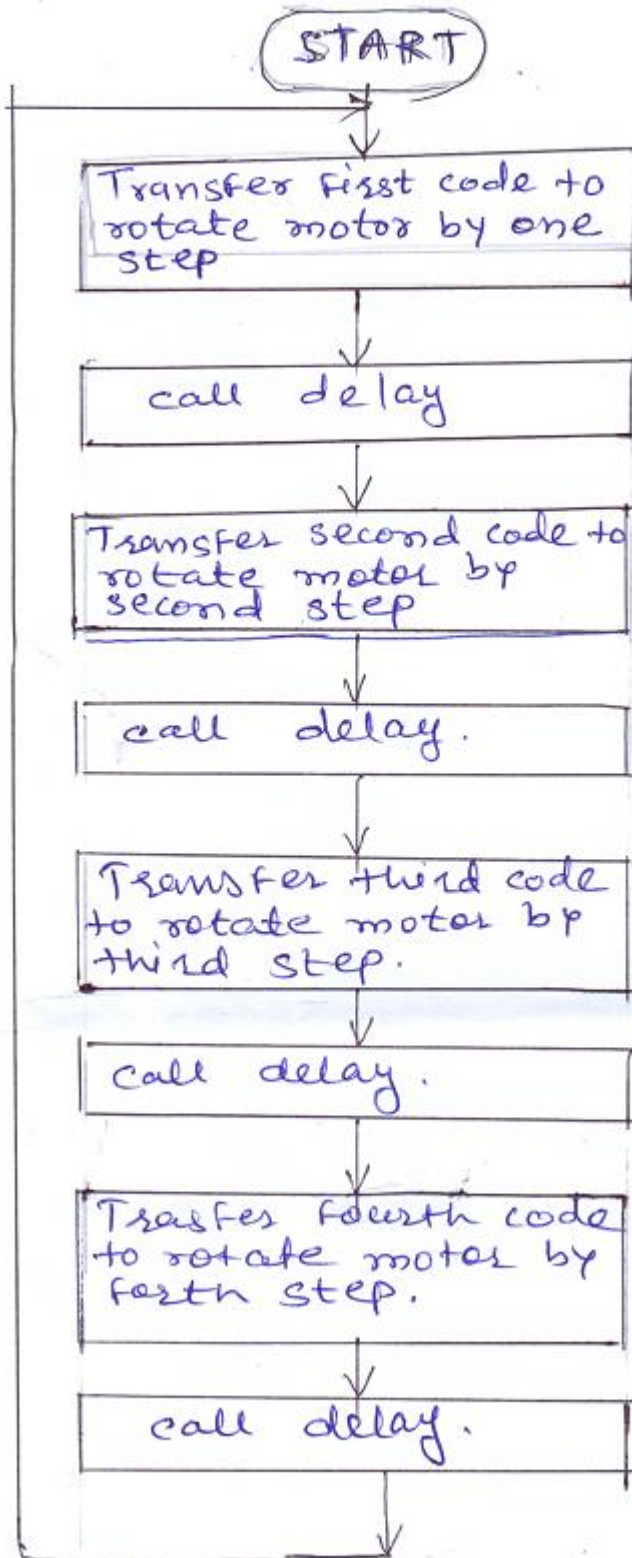 START
Transfer first code to
rotate motor by one
step
call delay
Transfer second code to
rotate motor by
second step
call delay.
Transfer third code
to rotate motor by
third step.
call delay.
Trasfer fourth code
to rotate motor by
forth step.
call delay.